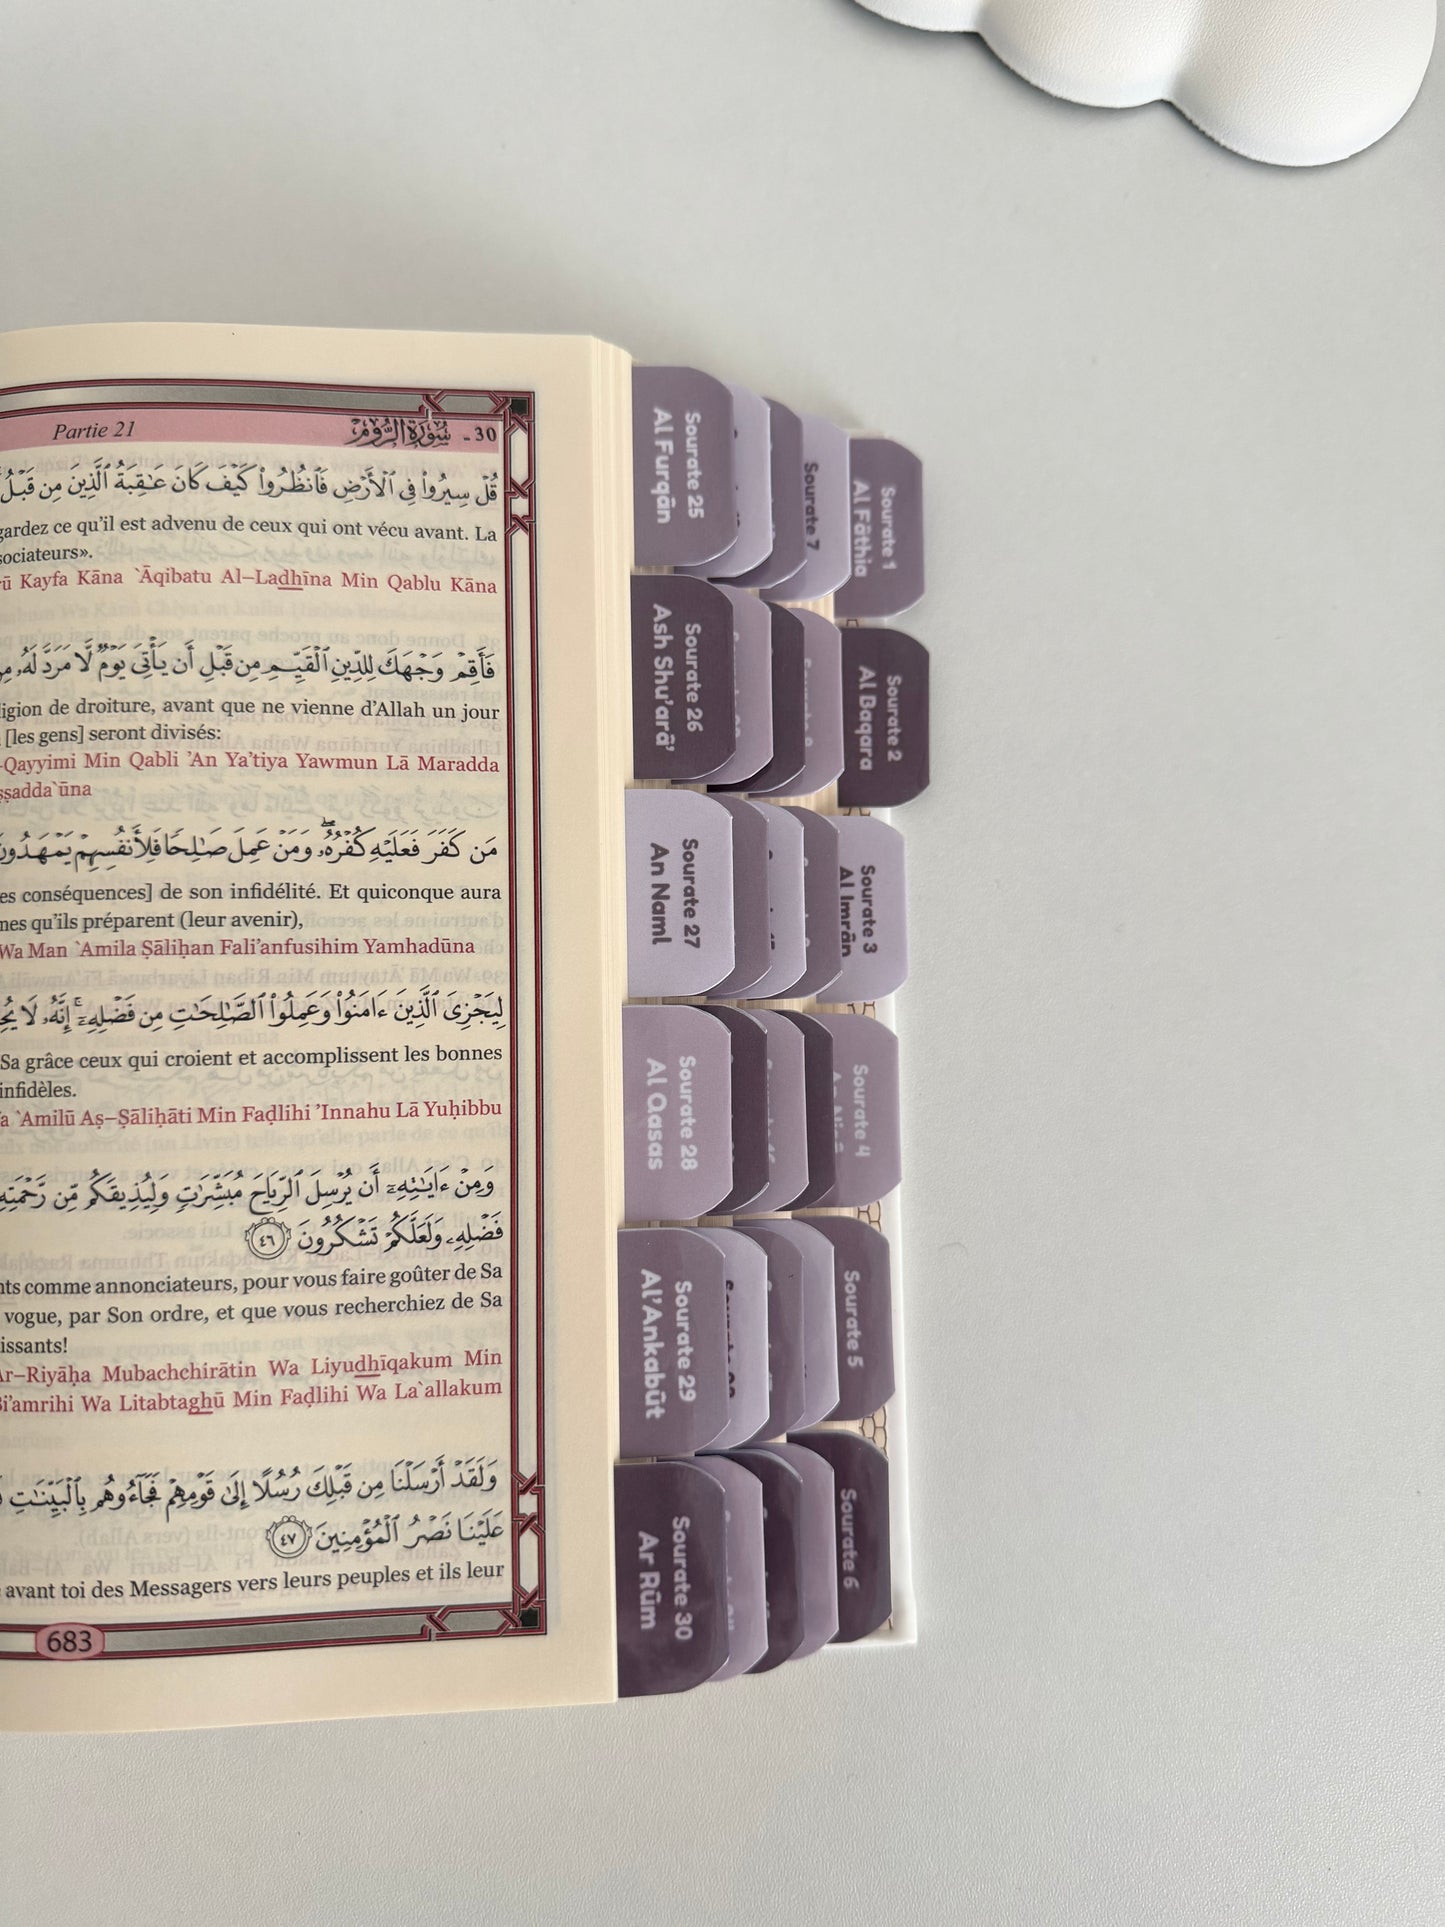 Partie 21
سُورَةُ الرُّومِ - 30
قُلْ سِيرُوا۟ فِى ٱلْأَرْضِ فَٱنظُرُوا۟ كَيْفَ كَانَ عَـٰقِبَةُ ٱلَّذِينَ مِن قَبْلُ
gardez ce qu'il est advenu de ceux qui ont vécu avant. La
sociateurs».
rū Kayfa Kāna `Āqibatu Al–Ladhīna Min Qablu Kāna
فَأَقِمْ وَجْهَكَ لِلدِّينِ ٱلْقَيِّـمِ مِن قَبْلِ أَن يَأْتِىَ يَوْمٌ لَّا مَرَدَّ لَهُۥ مِنَ
ligion de droiture, avant que ne vienne d'Allah un jour
[les gens] seront divisés:
-Qayyimi Min Qabli 'An Ya'tiya Yawmun Lā Maradda
ṣṣadda`ūna
مَن كَفَرَ فَعَلَيْهِ كُفْرُهُۥ ۖ وَمَنْ عَمِلَ صَـٰلِحًا فَلِأَنفُسِهِمْ يَمْهَدُونَ
es conséquences] de son infidélité. Et quiconque aura
nes qu'ils préparent (leur avenir),
Wa Man `Amila Ṣāliḥan Fali'anfusihim Yamhadūna
لِيَجْزِىَ ٱلَّذِينَ ءَامَنُوا۟ وَعَمِلُوا۟ ٱلصَّـٰلِحَـٰتِ مِن فَضْلِهِۦٓ ۚ إِنَّهُۥ لَا يُحِ
Sa grâce ceux qui croient et accomplissent les bonnes
infidèles.
a `Amilū Aṣ–Ṣāliḥāti Min Faḍlihi 'Innahu Lā Yuḥibbu
وَمِنْ ءَايَـٰتِهِۦٓ أَن يُرْسِلَ ٱلرِّيَاحَ مُبَشِّرَٰتٍ وَلِيُذِيقَكُم مِّن رَّحْمَتِهِۦ
فَضْلِهِۦ وَلَعَلَّكُمْ تَشْكُرُونَ ٤٦
nts comme annonciateurs, pour vous faire goûter de Sa
vogue, par Son ordre, et que vous recherchiez de Sa
issants!
Ar–Riyāḥa Mubachchirātin Wa Liyudhīqakum Min
Bi'amrihi Wa Litabtaghū Min Faḍlihi Wa La`allakum
وَلَقَدْ أَرْسَلْنَا مِن قَبْلِكَ رُسُلًا إِلَىٰ قَوْمِهِمْ فَجَآءُوهُم بِٱلْبَيِّنَـٰتِ
عَلَيْنَا نَصْرُ ٱلْمُؤْمِنِينَ ٤٧
avant toi des Messagers vers leurs peuples et ils leur
683
Sourate 25
Al Furqān
Sourate 26
Ash Shu'arā'
Sourate 27
An Naml
Sourate 28
Al Qasas
Sourate 29
Al'Ankabūt
Sourate 30
Ar Rūm
Sourate 7
Sourate 1
Al Fāthia
Sourate 2
Al Baqara
Sourate 3
Al Imrān
Sourate 4
Sourate 5
Sourate 6